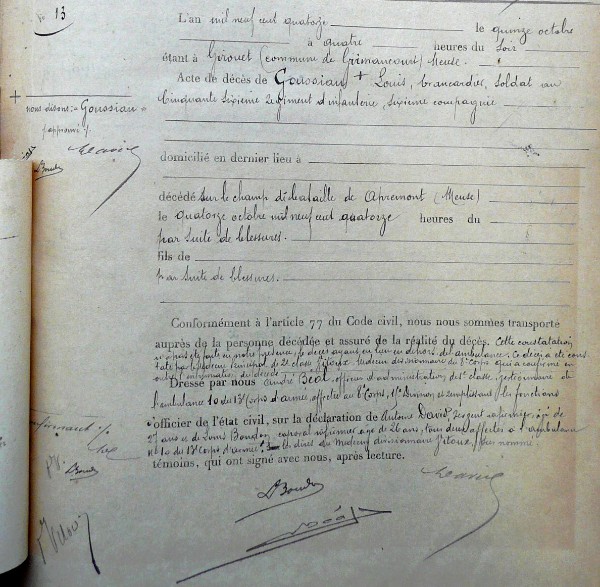 No 13
L'an mil neuf cent quatorze le quinze octobre
à quatre heures du soir
étant à Girouet (commune de Grimaucourt) Meuse.
Acte de décès de Goussian + Louis, brancardier, soldat au
Cinquante sixième Régiment d'infanterie, sixième compagnie
+
nous disons: "Goussian"
approuvé %.
domicilié en dernier lieu à
décédé sur le champ de bataille de Apremont (Meuse)
le quatorze octobre mil neuf cent quatorze heures du
par suite de blessures.
fils de
par suite de blessures.
Conformément à l'article 77 du Code civil, nous nous sommes transporté
auprès de la personne décédée et assuré de la réalité du décès. Cette constatation
n'a pas été faite en notre présence, le décès ayant eu lieu en dehors de l'ambulance. Ce décès a été cons
taté par le médecin de 2e classe médecin divisionnaire qui a confirmé en
outre du décédé
Dressé par nous André Béal, officier d'administration de 1e classe, gestionnaire de
l'ambulance 10 du 13e Corps d'armée, affectée au 8e Corps, 1e Division et remplissant les fonctions
d'officier de l'état civil, sur la déclaration de Antoine David, sergent infirmier, âgé de
ans et de Louis Boudon, caporal infirmier, âgé de 26 ans, tous deux affectés à l'ambulance
No 10 du 13e Corps d'armée. Et dires du Médecin divisionnaire, sus nommé
témoins, qui ont signé avec nous, après lecture.
L Boudon
Béal